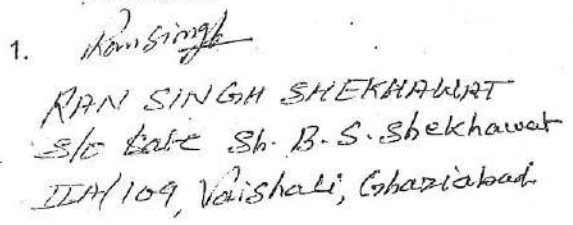 1. Ransingh
RAN SINGH SHEKHAWAT
S/o Late Sh. B. S. Shekhawat
IIA/109, Vaishali, Ghaziabad